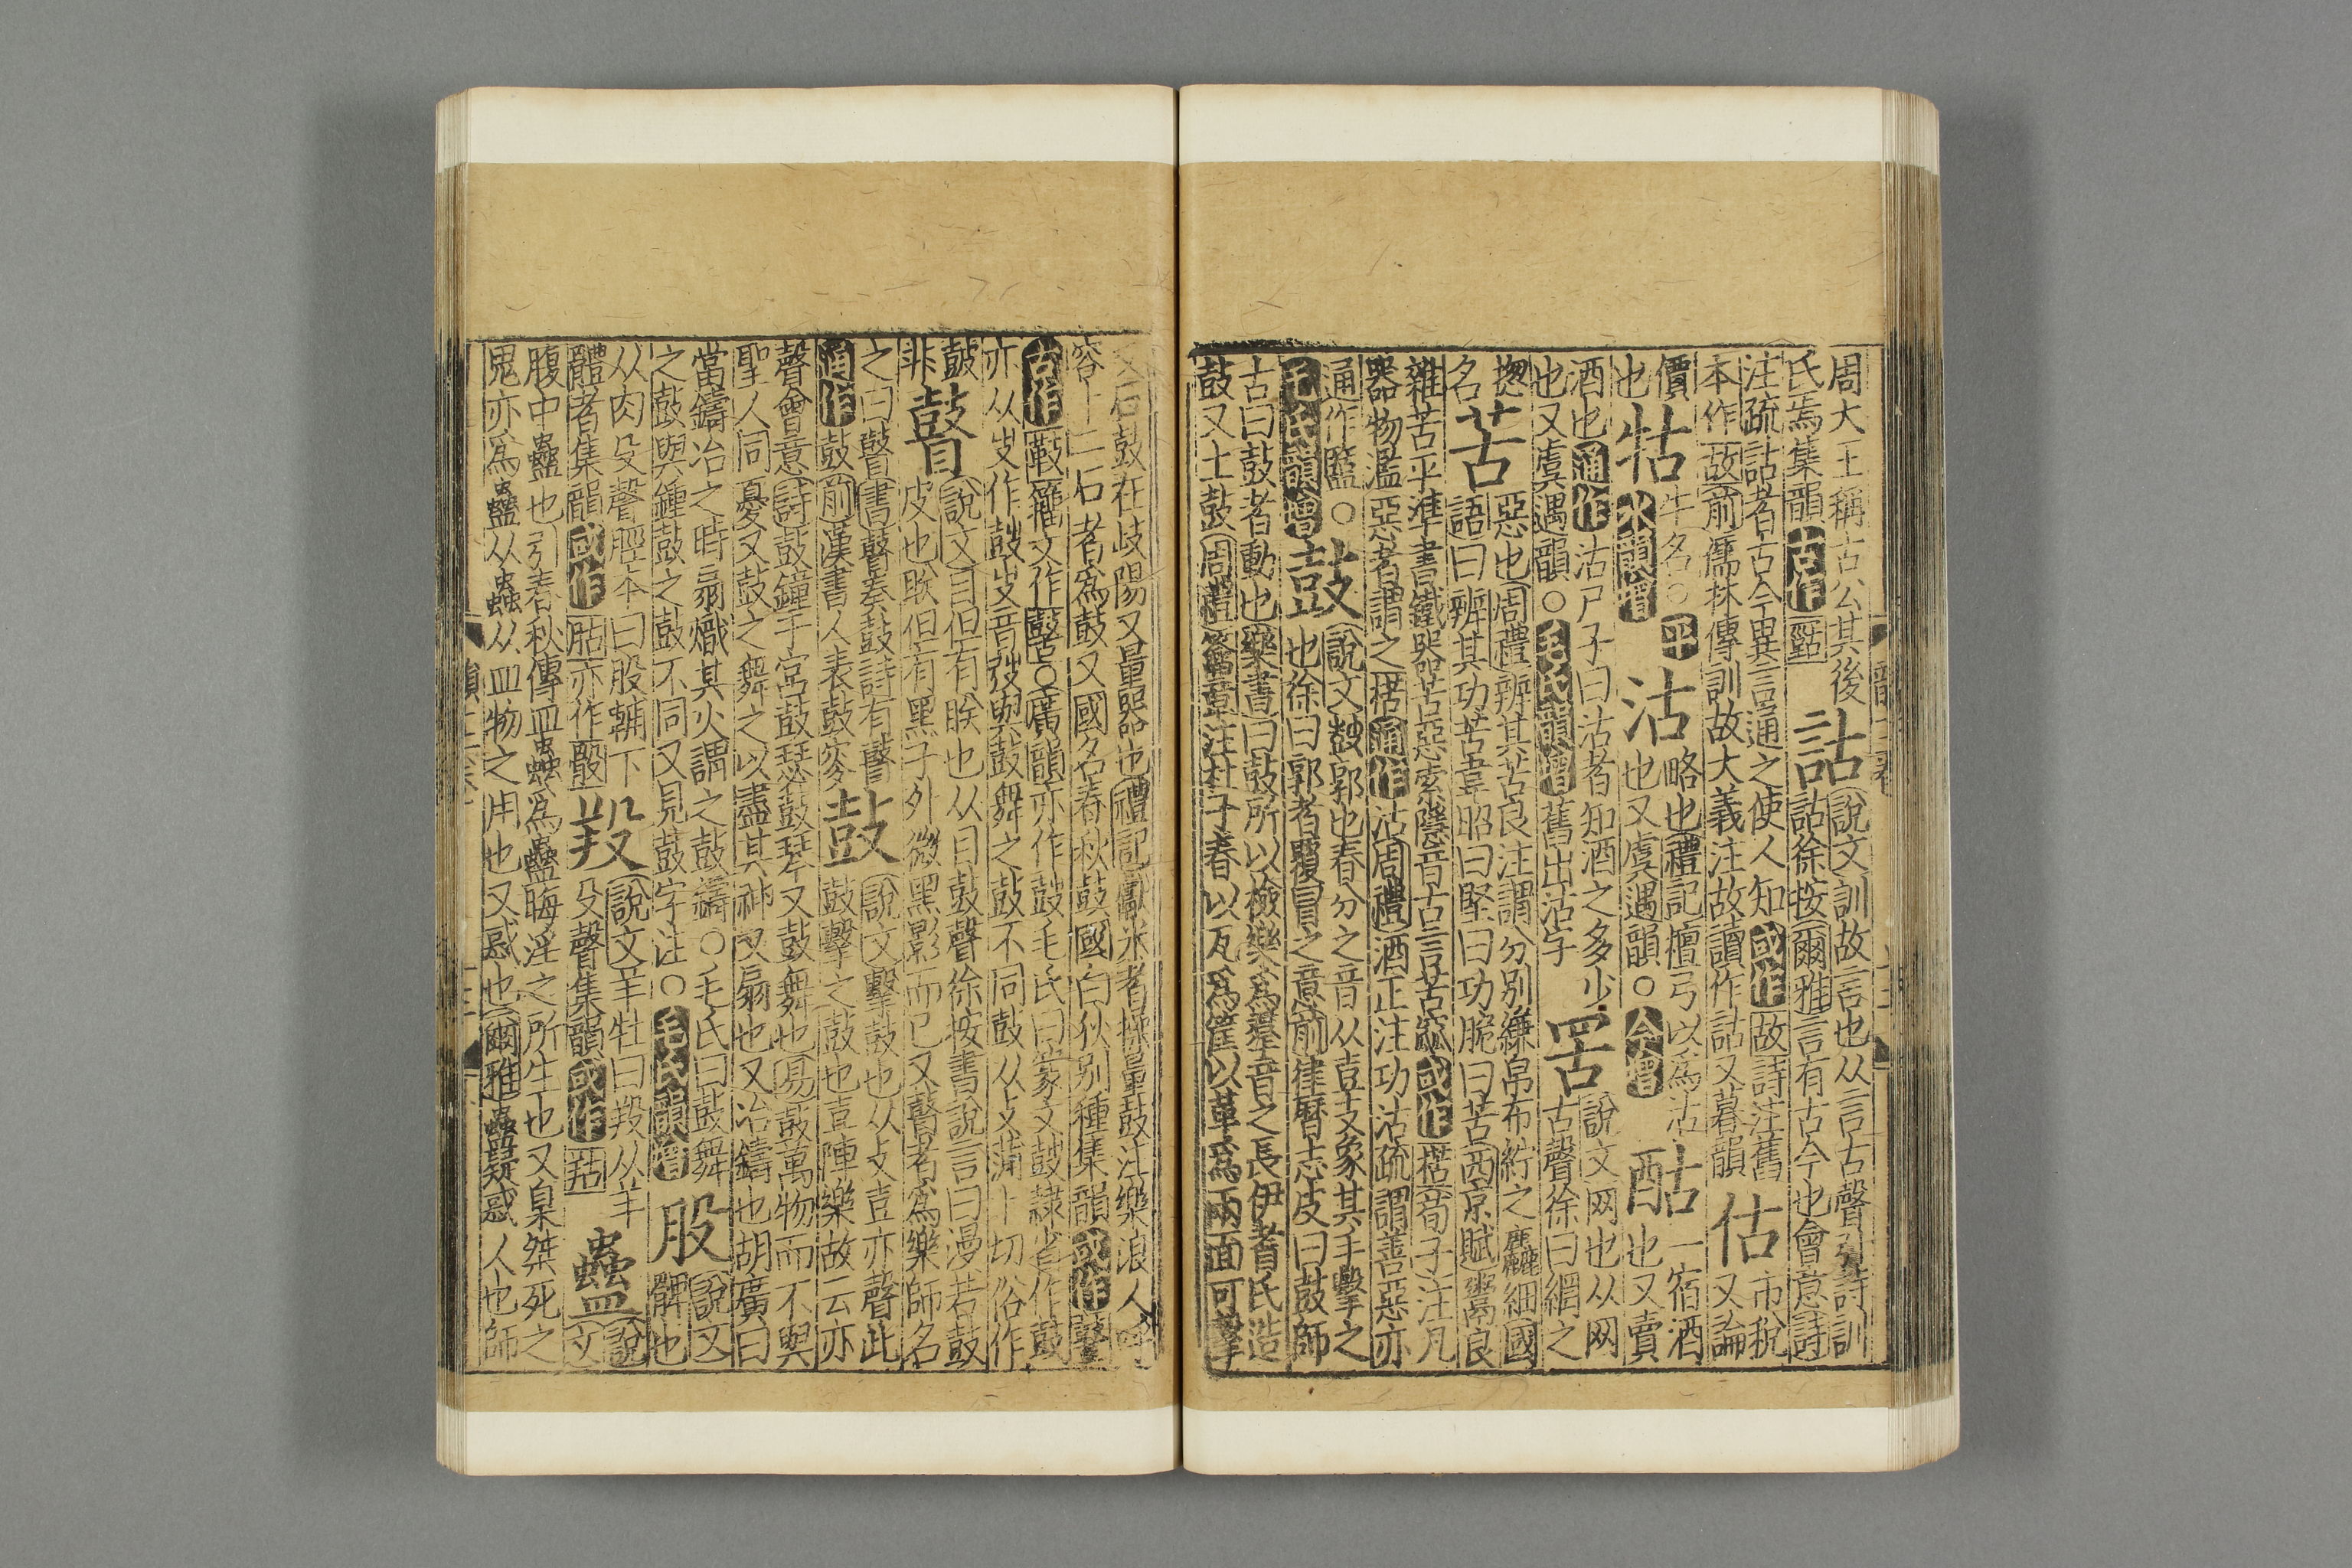 周大王稱古公其後
氏焉集韻古作
詁
說文訓故言也从言古聲引詩訓
詁徐按爾雅言有古今也會意詩
注疏詁者古今異言通之使人知或作故詩注舊
本作故前儒林傳訓故大義注故讀作詁又暮韻
估
市稅
又論
價
也
牯
牛名○平
水韻增
沽
略也禮記檀弓以爲沽
也又虞遇韻○今增
酤
一宿酒
也又賣
酒也通作沽尸子曰沽者知酒之多少
也又虞遇韻○毛氏韻增舊出沽字
罟
說文网也从网
古聲徐曰網之
揔
名
苦
惡也周禮辨其苦良注謂分別縑帛布紵之麤細國
語曰辨其功苦韋昭曰堅曰功脆曰苦西京賦鬻良
雜苦平準書鐵器苦惡索隱音古言苦窳或作楛荀子注凡
器物濫惡者謂之楛通作沽周禮酒正注功沽疏謂善惡亦
通作盬○
毛氏韻增
鼓
說文鼓郭也春分之音从壴支象其手擊之
也徐曰郭者覆冒之意前律曆志皮曰鼓師
古曰鼓者動也樂書曰鼓所以檢樂爲羣音之長伊耆氏造
鼓又土鼓周禮籥章注杜子春以瓦爲筐以革爲兩面可擊
又石鼓在歧陽又量器也禮記獻米者操量鼓注樂浪人呼
容十二石者爲鼓又國名春秋鼓國白狄別種集韻或作
古作籒文作○廣韻亦作皷毛氏曰篆文鼓隸省作鼓
亦从攴作攴音與鼓舞之鼓不同鼓从攴蒲卜切俗作
皷
非
瞽
說文目但有眹也从目鼓聲徐按書說言曰漫若鼓
皮也眹但有黑子外微黑影而已又瞽者爲樂師名
之曰瞽書瞽奏鼓詩有瞽
通作鼓前漢書人表鼓叜
鼓
說文擊鼓也从攴壴亦聲此
鼓擊之鼓也壴陳樂故云亦
聲會意詩鼓鐘于宮鼓瑟鼓琴又鼓舞也易鼓萬物而不與
聖人同憂又鼓之舞之以盡其神又扇也又冶鑄也胡廣曰
當鑄冶之時扇熾其火謂之鼓鑄○毛氏曰鼓舞
之鼓與鍾鼓之鼓不同又見鼓字注○毛氏韻增
股
說文
髀也
从肉殳聲脛本曰股輔下
體者集韻或作亦作骰
羖
說文羊牡曰羖从羊
殳聲集韻或作羖
蠱
說
文
腹中蠱也引春秋傳皿蟲爲蠱晦淫之所生也又梟桀死之
鬼亦爲蠱从蟲从皿物之用也又惑也爾雅蠱疑惑人也師